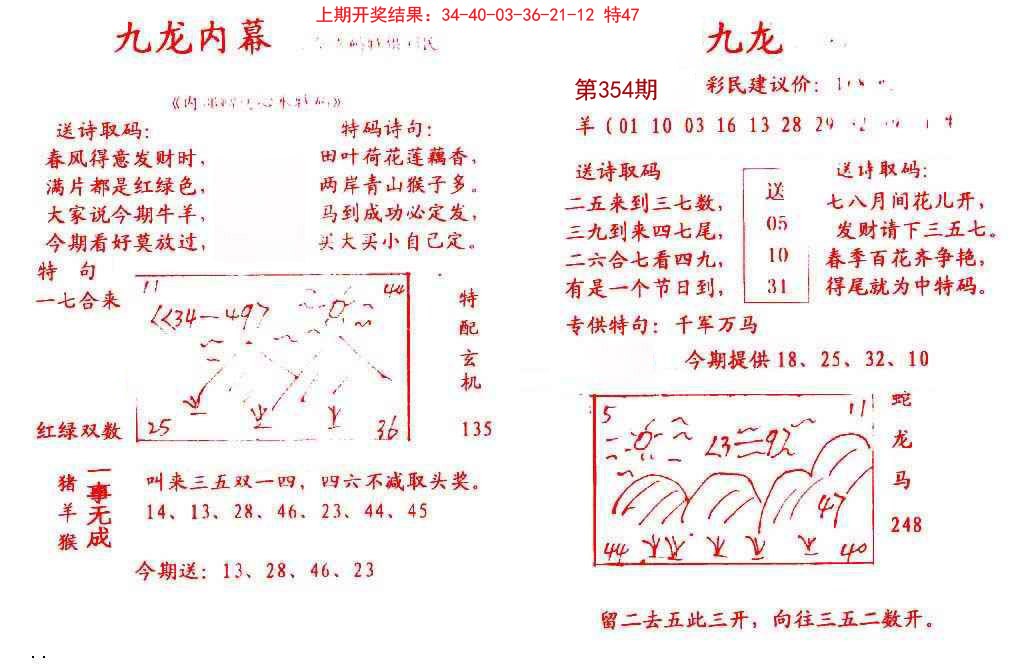 上期开奖结果：34-40-03-36-21-12 特47
九龙内幕
送诗取码：
春风得意发财时，
满片都是红绿色，
大家说今期牛羊，
今期看好莫放过，
特码诗句：
田叶荷花莲藕香，
两岸青山猴子多。
马到成功必定发，
买大买小自己定。
特 句
一七合来
红绿双数
11
44
34—49
25
36
特配玄机
135
猪羊猴
一事无成
叫来三五双一四，四六不减取头奖。
14、13、28、46、23、44、45
今期送：13、28、46、23
九龙
第354期
彩民建议价：
羊（01 10 03 16 13 28 29
送诗取码
二五来到三七数，
三九到来四七尾，
二六合七看四九，
有是一个节日到，
送
05
10
31
送诗取码：
七八月间花儿开，
发财请下三五七。
春季百花齐争艳，
得尾就为中特码。
专供特句：千军万马
今期提供 18、25、32、10
5
11
47
44
40
蛇
龙
马
248
留二去五此三开，向往三五二数开。